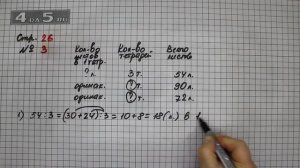 4 da 5.ru
Стр. 26
№ 3
Кол-во листов в 1 тетр.
Кол-во тетрадей
Всего листов
? л. 3 т. 54 л.
одинак. ? т. 90 л.
одинак. ? т. 72 л.
1) 54 : 3 = (30+24) : 3 = 10 + 8 = 18 (л.) в